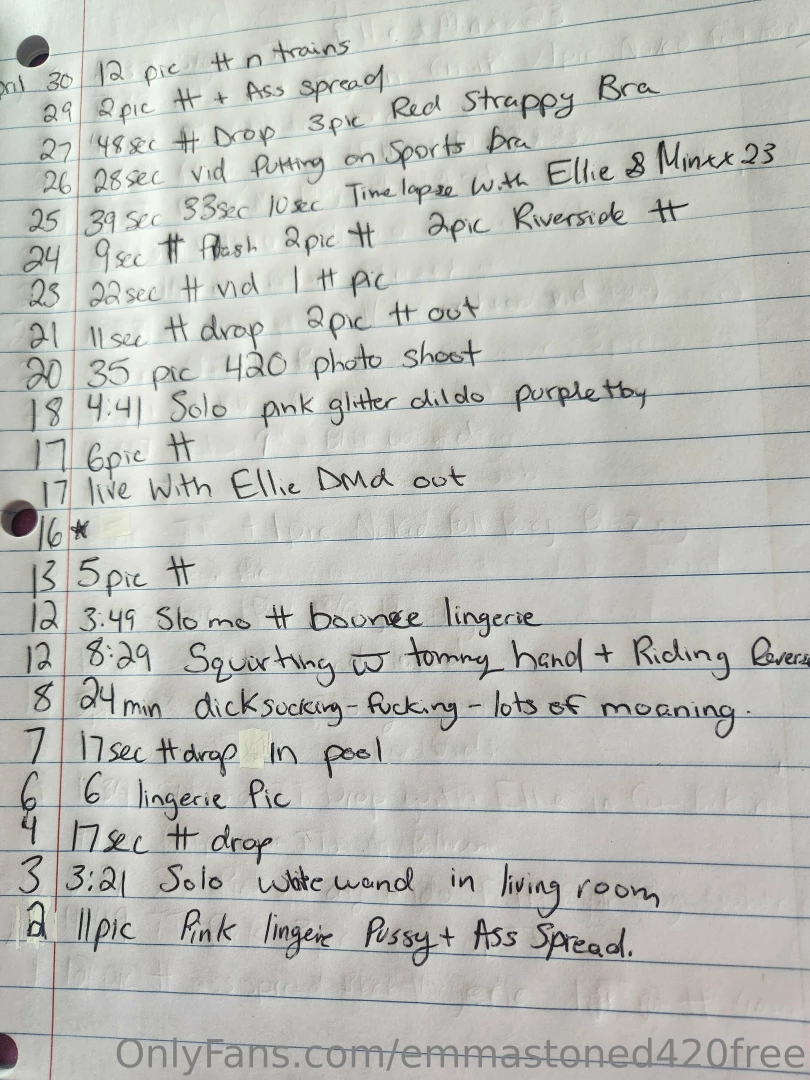 30 12 pic tt n trains
29 2pic tt + Ass spread
27 48sec tt Drop 3pic Red Strappy Bra
26 28sec vid Putting on Sports bra
25 39 sec 33sec 10sec Timelapse With Ellie & Minxx 23
24 9sec tt flash 2pic tt 2pic Riverside tt
23 22sec tt vid 1 tt pic
21 11sec tt drop 2pic tt out
20 35 pic 420 photo shoot
18 4:41 Solo pink glitter dildo purple toy
17 6pic tt
17 live With Ellie DMd out
16 *
13 5pic tt
12 3:49 Slo mo tt bounce lingerie
12 8:29 Squirting w tommy hand + Riding
8 24min dicksucking - fucking - lots of moaning.
7 17sec tt drop in pool
6 6 lingerie Pic
4 17sec tt drop
3 3:21 Solo white wand in living room
2 11pic Pink lingerie Pussy + Ass Spread.
OnlyFans.com/emmastoned420free